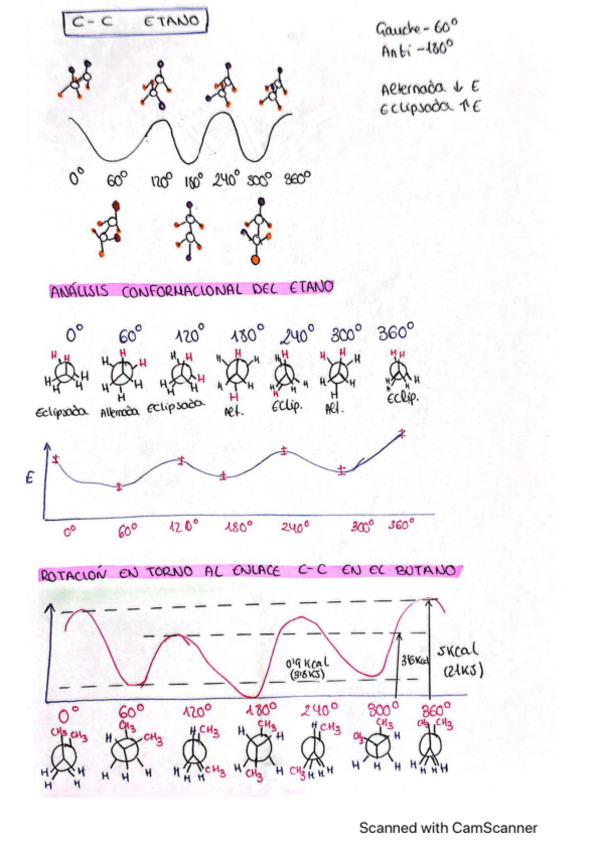 C-C ETANO
Gauche - 60°
Anti - 180°
Alternada ↓ E
Eclipsada ↑ E
0° 60° 120° 180° 240° 300° 360°
ANÁLISIS CONFORMACIONAL DEL ETANO
0° 60° 120° 180° 240° 300° 360°
H H H H H H
H H H H H H
H H H H H H
H H H H H H
H H H H H H
H H H H H H
H H H H H H
Eclipsada Alternada Eclipsada Alt. Eclip. Alt. Eclip.
E
0° 60° 120° 180° 240° 300° 360°
ROTACIÓN EN TORNO AL ENLACE C-C EN EL BUTANO
0'9 Kcal
(3'8 KJ)
3'6 Kcal
5 Kcal
(21 KJ)
0° 60° 120° 180° 240° 300° 360°
CH3 CH3 H H H H
CH3 H CH3 H H H
H CH3 CH3 H H H
CH3 H H H H CH3
H CH3 CH3 H H H
CH3 CH3 H H H H
CH3 CH3 H H H H
Scanned with CamScanner